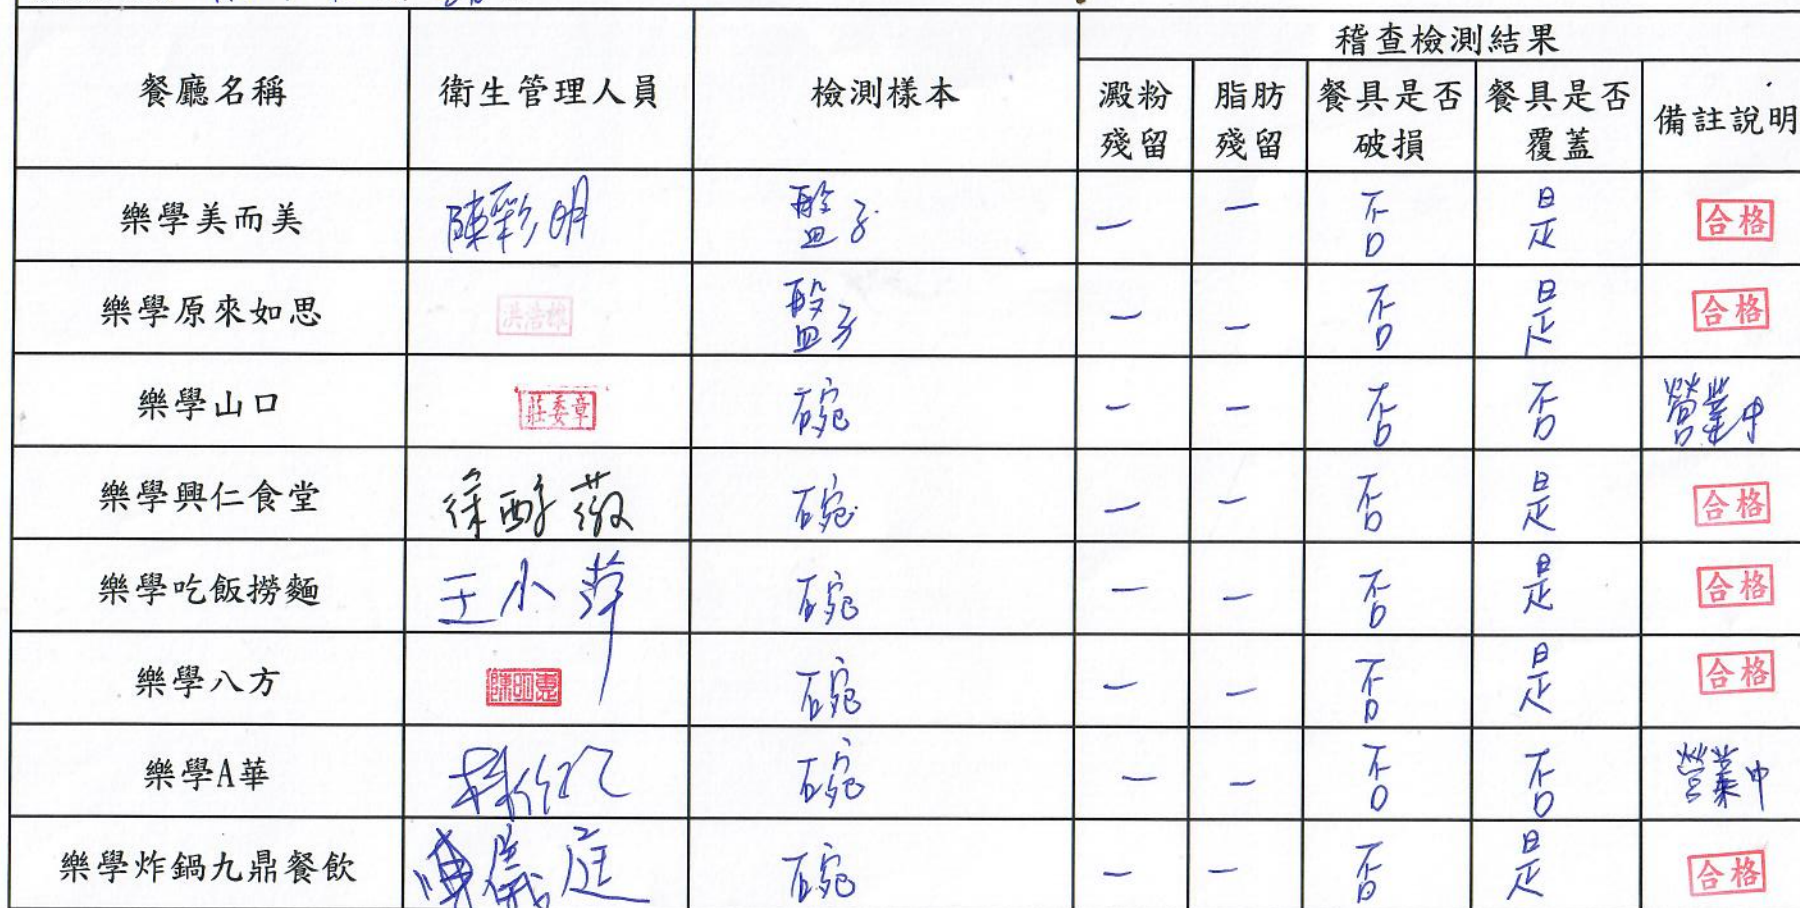 稽查檢測結果
餐廳名稱 衛生管理人員 檢測樣本 澱粉殘留 脂肪殘留 餐具是否破損 餐具是否覆蓋 備註說明
樂學美而美 陳彩明 盤子 — — 否 是 合格
樂學原來如思 盤子 — — 否 是 合格
樂學山口 莊委章 碗 — — 否 否 營業中
樂學興仁食堂 碗 — — 否 是 合格
樂學吃飯撈麵 王小萍 碗 — — 否 是 合格
樂學八方 碗 — — 否 是 合格
樂學A華 碗 — — 否 否 營業中
樂學炸鍋九鼎餐飲 碗 — — 否 是 合格